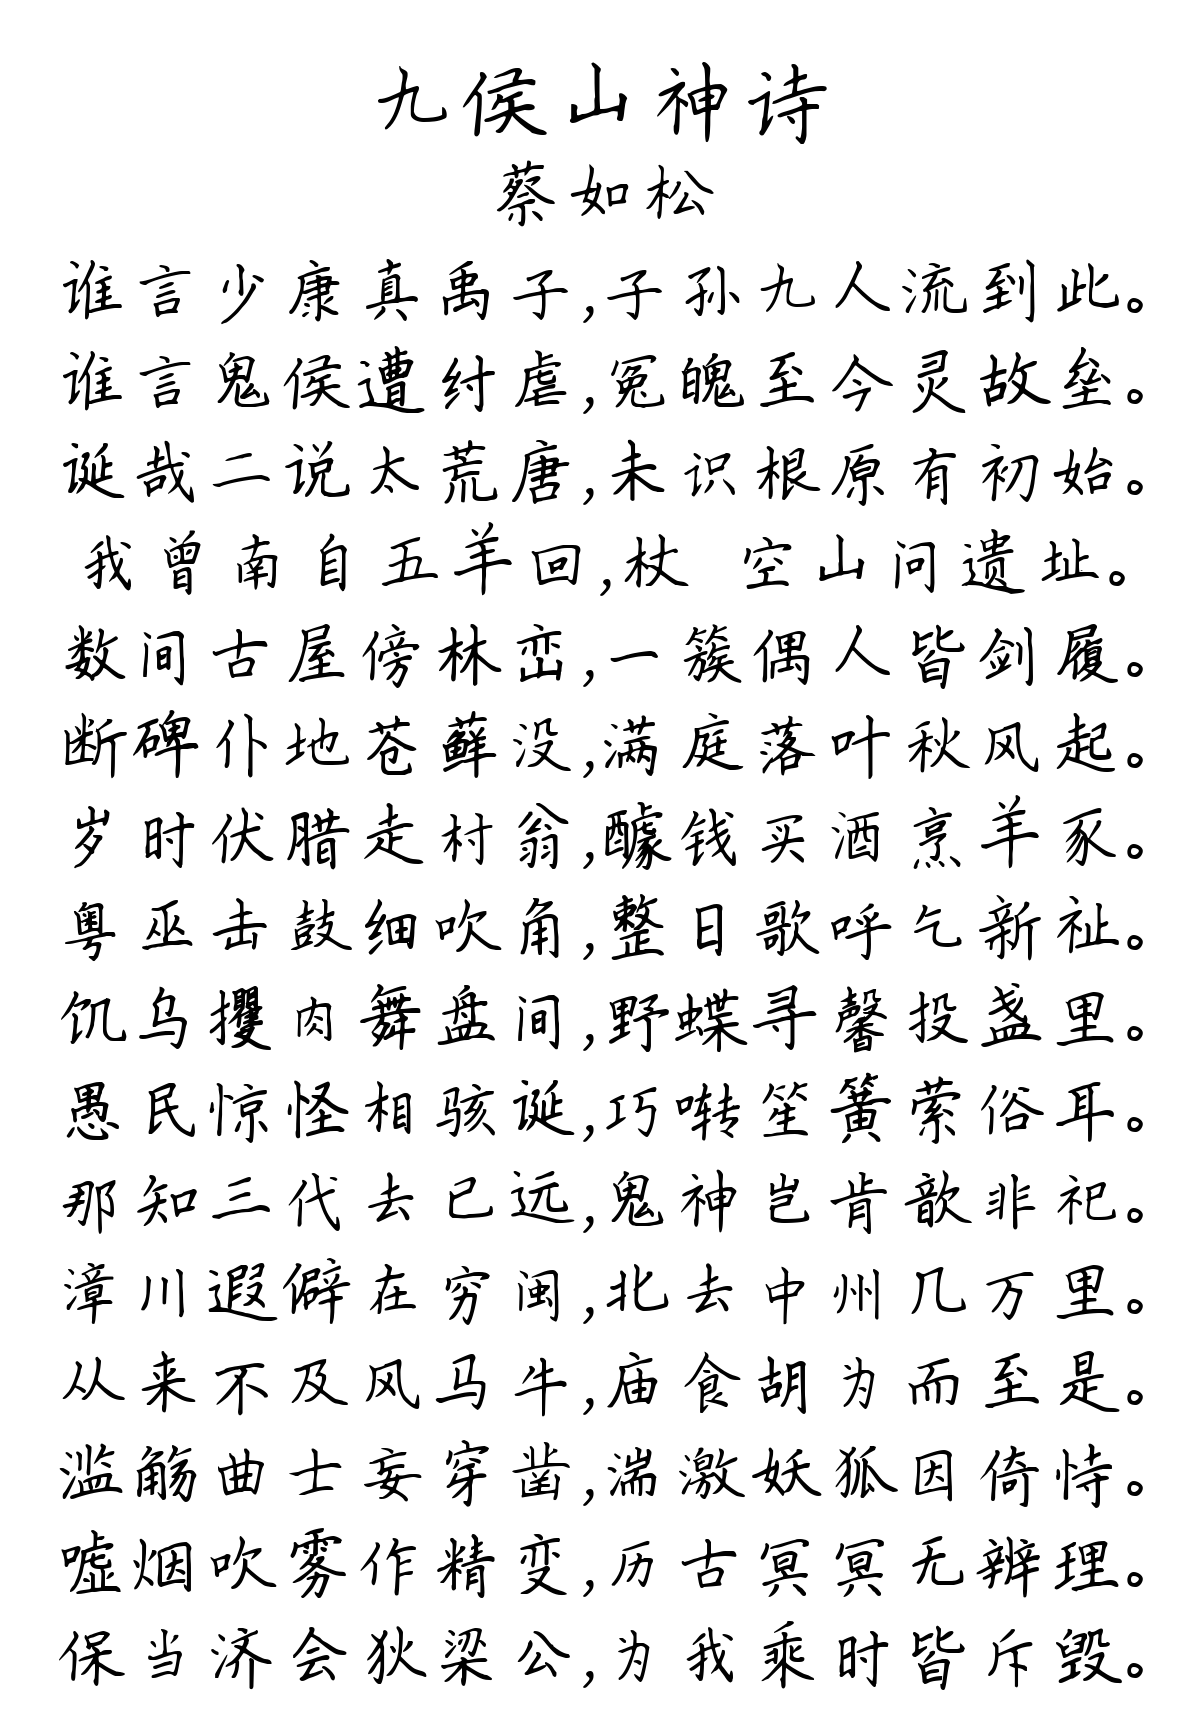 九侯山神诗
蔡如松
谁言少康真禹子,子孙九人流到此。
谁言鬼侯遭纣虐,冤魄至今灵故垒。
诞哉二说太荒唐,未识根原有初始。
我曾南自五羊回,杖 空山问遗址。
数间古屋傍林峦,一簇偶人皆剑履。
断碑仆地苍藓没,满庭落叶秋风起。
岁时伏腊走村翁,醵钱买酒烹羊豕。
粤巫击鼓细吹角,整日歌呼乞新祉。
饥乌攫肉舞盘间,野蝶寻馨投盏里。
愚民惊怪相骇诞,巧啭笙簧萦俗耳。
那知三代去已远,鬼神岂肯歆非祀。
漳川遐僻在穷闽,北去中州几万里。
从来不及风马牛,庙食胡为而至是。
滥觞曲士妄穿凿,湍激妖狐因倚恃。
嘘烟吹雾作精变,历古冥冥无辨理。
保当济会狄梁公,为我乘时皆斥毁。